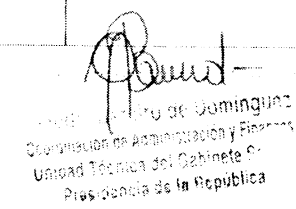 de Dominguez
Coordinación de Administración y Finanzas
Unidad Técnica del Gabinete
Presidencia de la República